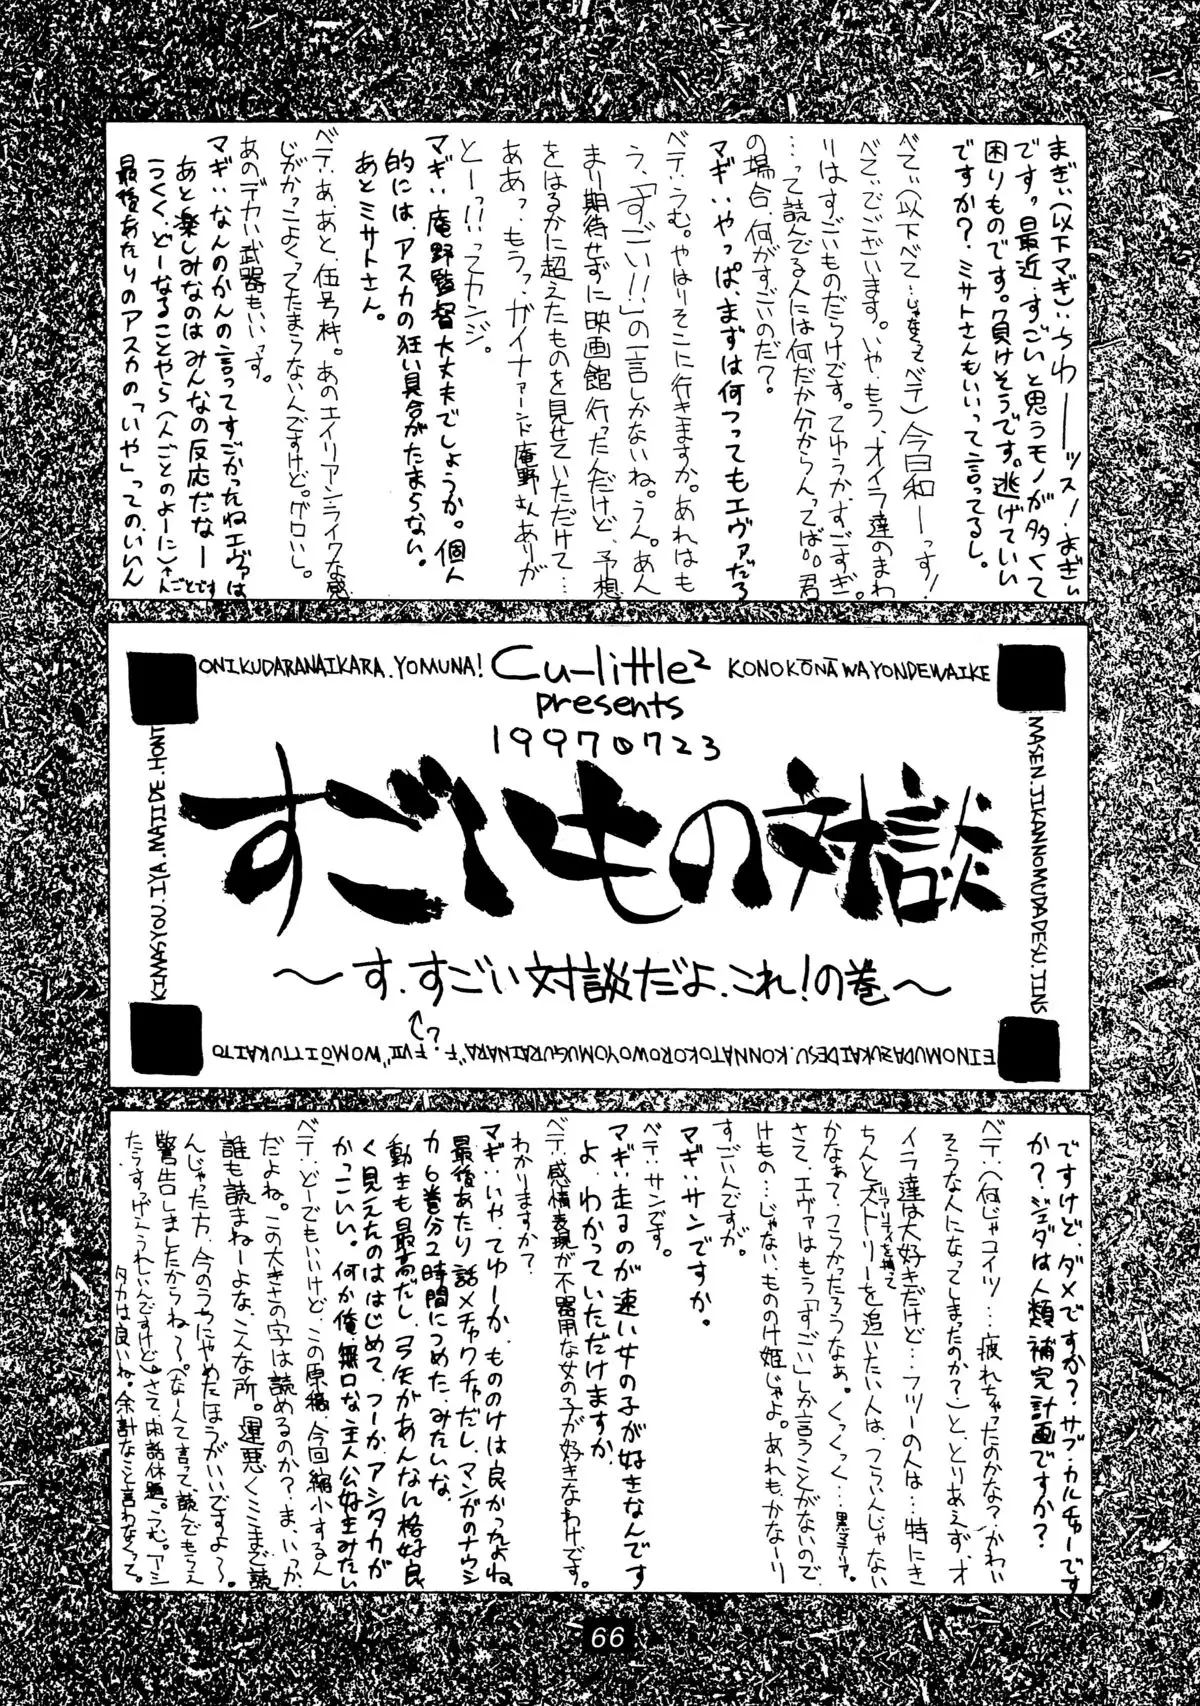 まぎぃ(以下マギ)：ちわーーッス！まぎぃ
です。最近、すごいと思うモノが多くて
困りものです。負けそうです。逃げていい
ですか？ミサトさんもいいって言ってるし。
べてぃ(以下べて…じゃなくってベテ)：今日和ーっす！
べてぃでございます。いや、もう、オイラ達のまわ
りはすごいものだらけです。てゆうか、すごすぎ。
…って読んでる人には何だか分からんってば。君
の場合、何がすごいのだ？
マギ：やっぱまずは何つってもエヴァだろ
ベテ：うむ。やはりそこに行きますか。あれはも
う、「すごい!!」の一言しかないね。うん。あん
まり期待せずに映画館行ったんだけど、予想
をはるかに超えたものを見せていただけて…
ああっ、もうっ、ガイナァーンド庵野さんありが
とーっ!!ってカンジ。
マギ：庵野監督大丈夫でしょうか。個人
的には、アスカの狂い具合がたまらない。
あとミサトさん。
ベテ：あ、あと、伍号機。あのエイリアン・ライクな感
じがかっこよくってたまらないんですけど。グロいし。
あのデカい武器もいっす。
マギ：なんのかんの言ってすごかったねエヴァは
あと楽しみなのはみんなの反応だなー
つくく、どーなることやら(人ごとのよーに)
最後あたりのアスカの「いや」っての、いいん
ONIKUDARANAIKARA.YOMUNA! Cu-little2 KONOKŌNĀ WA YONDEWAIKE
presents
19970723
MASEN.JIKANNOMUDADESU.JINS
EINOMUDAZUKAIDESU.KONNATOKOROWOYOMUGURAINARA"F FVII"WOMŌITTUKAITO
KINASYOU.IYA.MAJIDE.HONT
すごいもの対談
～す、すごい対談だよ、これ！の巻～
？
ですけど、ダメですか？サブ・カルチャーです
か？ジェダは人類補完計画ですか？
ベテ：(何じゃコイツ…疲れちゃったのかな？かわい
そうな人になってしまったのか？)と、とりあえず、オ
イラ達は大好きだけど…フツーの人は…特にき
ちんとストーリーを追いたい人は、つらいんじゃない
かなぁて、つらかったろうなぁ。くっくっく…
さて、エヴァはもう「すごい」しか言うことがないので、
けもの…じゃない、もののけ姫じゃよ。あれも、かなーり
すごいんですが。
マギ：サンですか。
ベテ：サンです。
マギ：走るのが速い女の子が好きなんです
よ、わかっていただけますか
ベテ：感情表現が不器用な女の子が好きなわけです。
わかりますか？
マギ：いや、てゆーか、もののけは良かったよね
最後あたり話メチャクチャだし、マンガのナウシ
カ6巻分2時間につめた、みたいな。
動きも最高だし、弓矢があんなに格好良
く見えたのははじめて、つーか、アシタカが
かっこいい。何か俺無口な主人公好きみたい
ベテ：どーでもいいけど、この原稿、今回縮小するん
だよね。この大きさの字は読めるのか？ま、いっか、
誰も読まねーよな、こんな所。運悪くここまで読
んじゃった方、今のうちにやめたほうがいいですよ～。
警告しましたからね～(なーんて言って読んでもらえ
たらすっげーうれしいんですけど)さて、閑話休題。うむ。アシ
タカは良いね。余計なこと言わなくって。
66